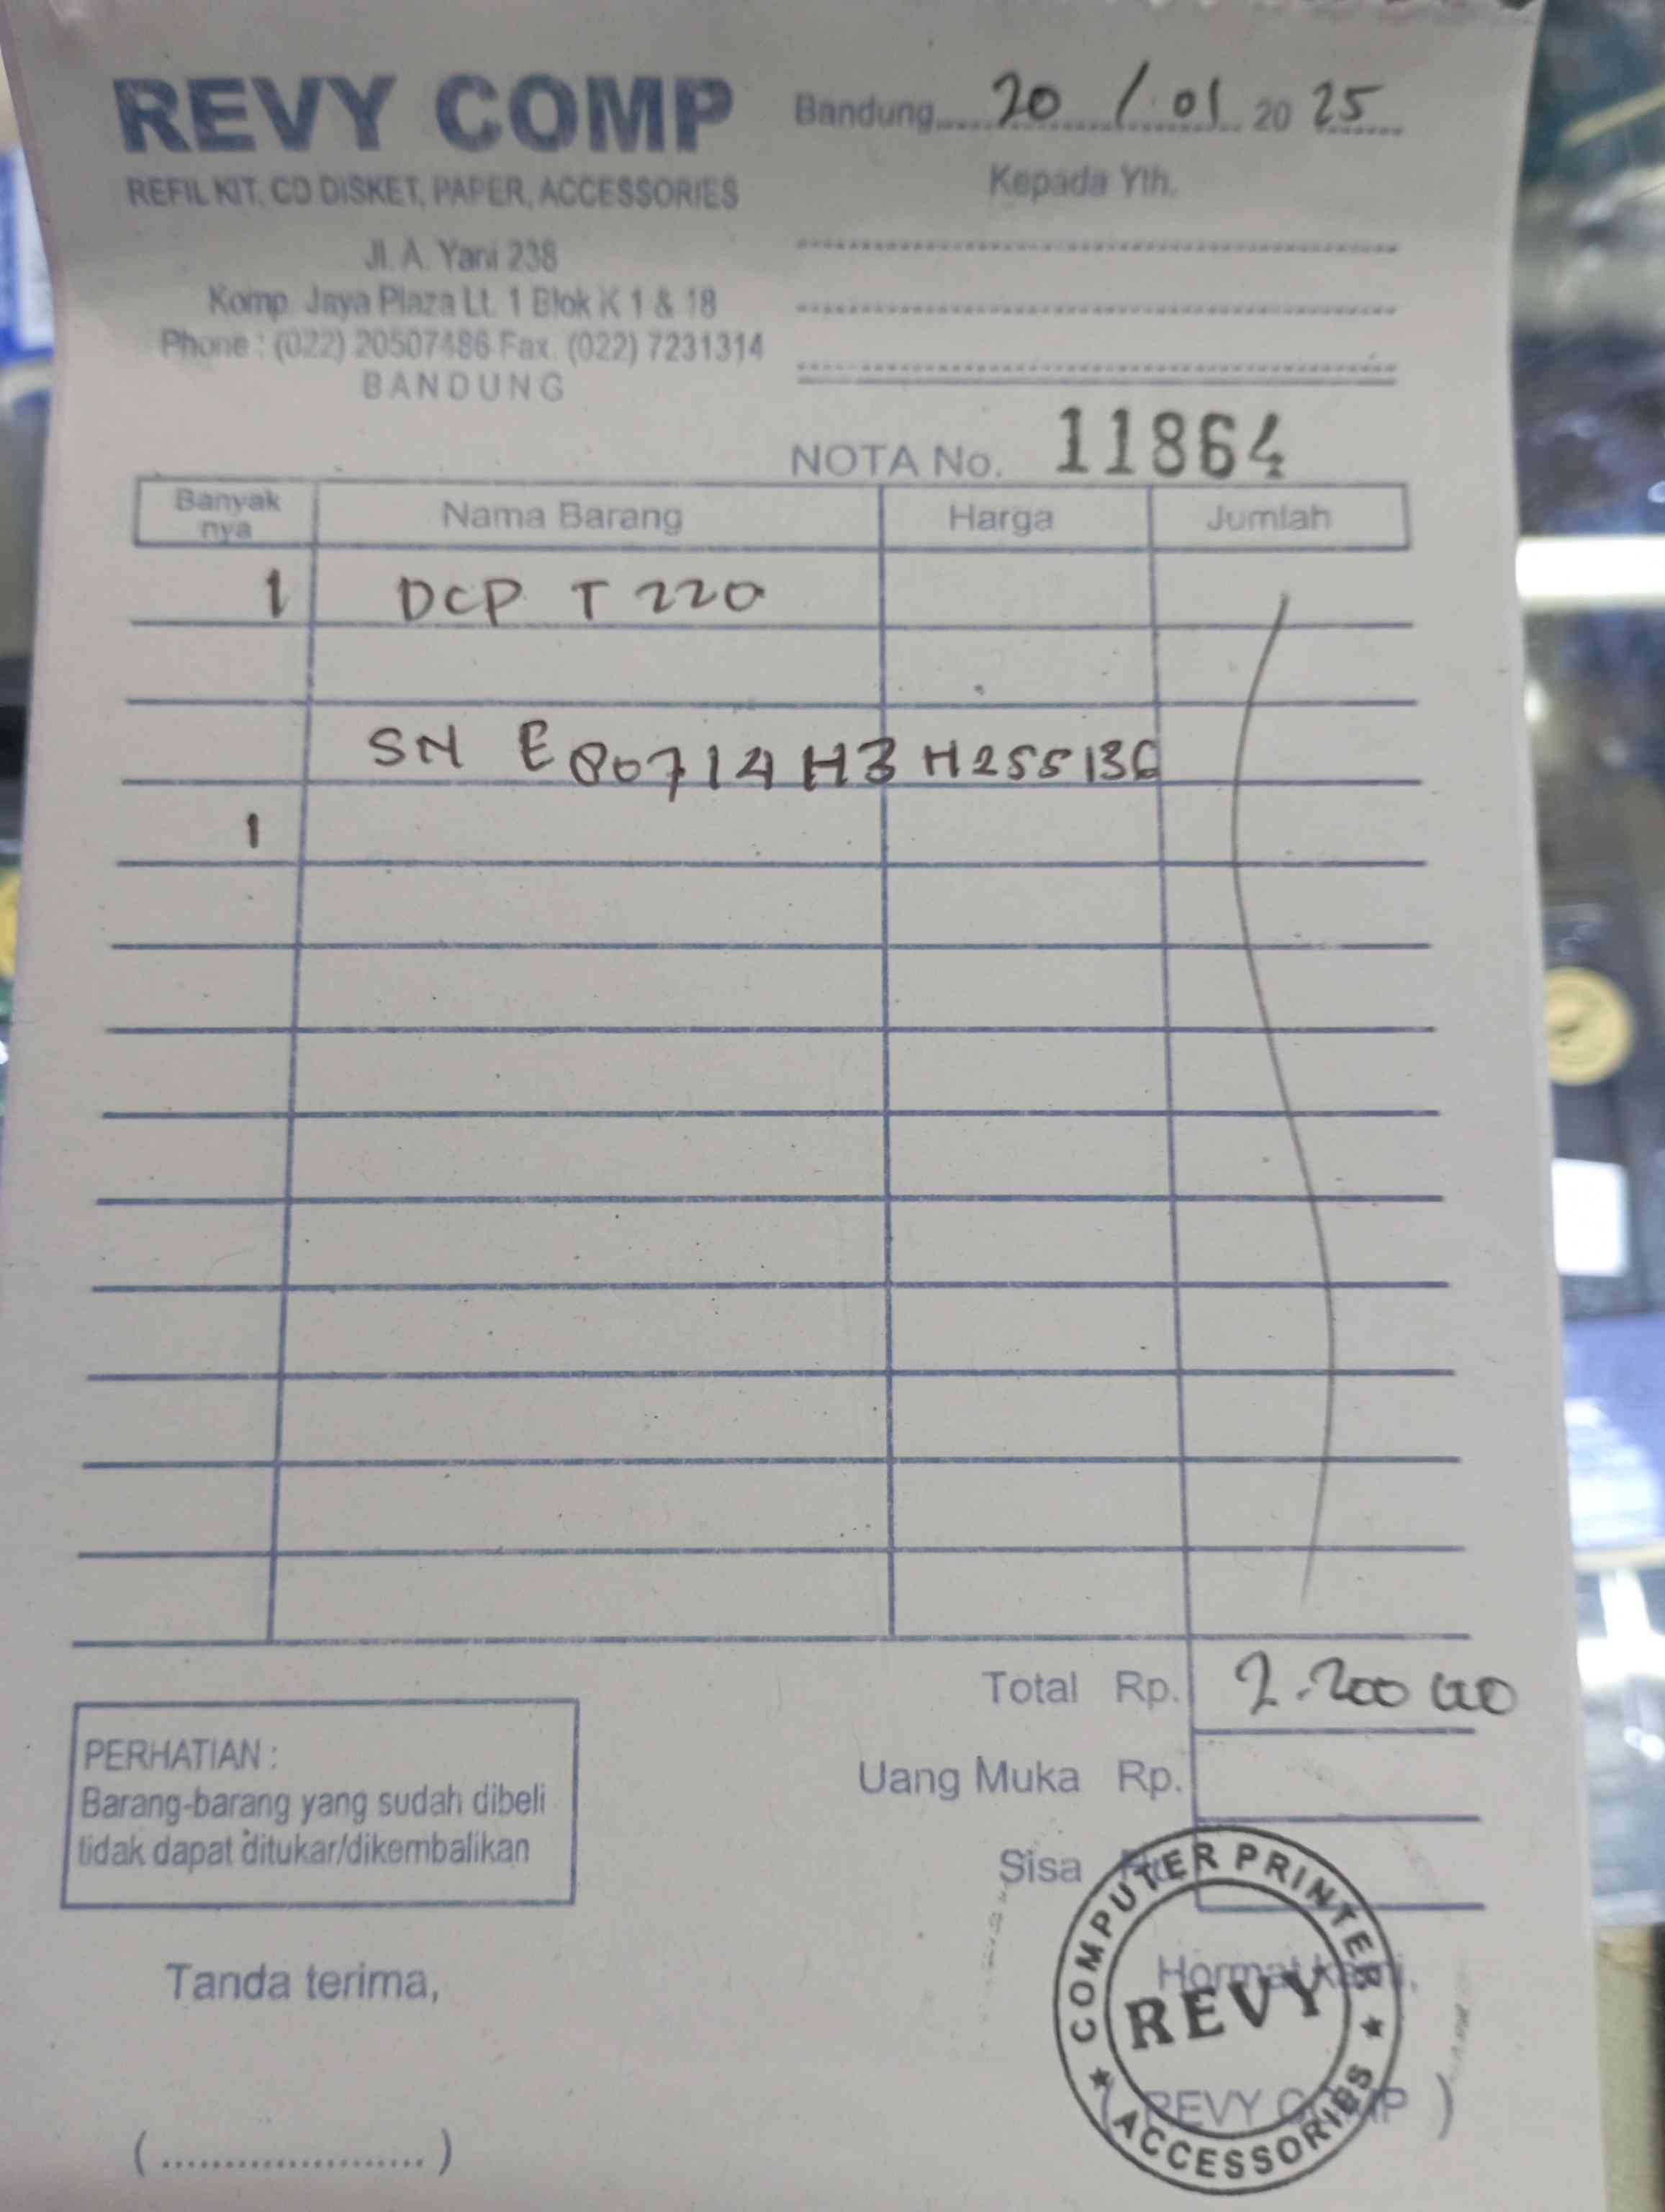 REVY COMP
REFIL KIT, CD DISKET, PAPER, ACCESSORIES
Jl. A. Yani 238
Komp. Jaya Plaza Lt. 1 Blok K 1 & 18
Phone : (022) 20507486 Fax. (022) 7231314
BANDUNG
Bandung, 20 / 01 20 25
Kepada Yth.
NOTA No. 11864
Banyak nya Nama Barang Harga Jumlah
1 DCP T 220
SN E80714H3H255136
1
Total Rp. 2.200 000
Uang Muka Rp.
Sisa Rp.
PERHATIAN :
Barang-barang yang sudah dibeli
tidak dapat ditukar/dikembalikan
Tanda terima,
Hormat kami,
( REVY COMP )
COMPUTER PRINTER
REVY
ACCESSORIES